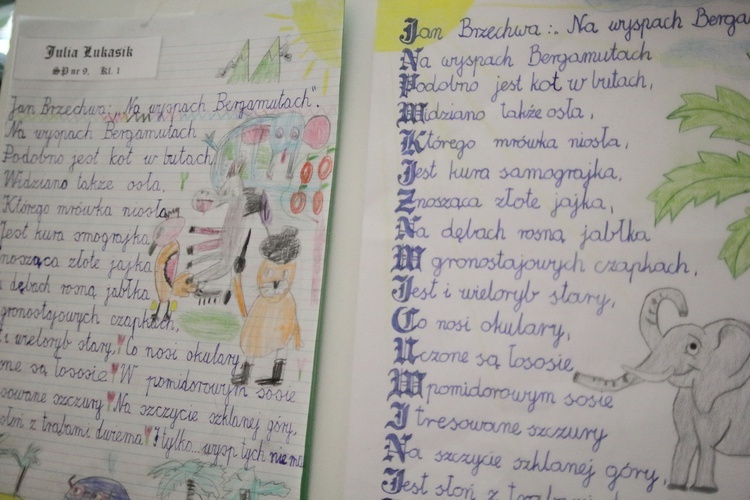 Julia Łukasik
SP nr 9, Kl. 1
Jan Brzechwa: „Na wyspach Bergamutach".
Na wyspach Bergamutach
Podobno jest kot w butach,
Widziano także osła,
Którego mrówka niosła,
Jest kura smograjka
nosząca złote jajka
dębach rosną jabłka
gronostajowych czapkach,
i wieloryb stary, Co nosi okulary,
ne są łososie W pomidorowym sosie
sowane szczury Na szczycie szklanej góry,
słoń z trąbami dwiema I tylko...wysp tych nie ma
Jan Brzechwa: Na wyspach Berga
Na wyspach Bergamutach
Podobno jest kot w butach,
Widziano także osła,
Którego mrówka niosła,
Jest kura samograjka,
Znosząca złote jajka,
Na dębach rosną jabłka
W gronostajowych czapkach,
Jest i wieloryb stary,
Co nosi okulary,
Uczone są łososie
W pomidorowym sosie
I tresowane szczury
Na szczycie szklanej góry,
Jest słoń z